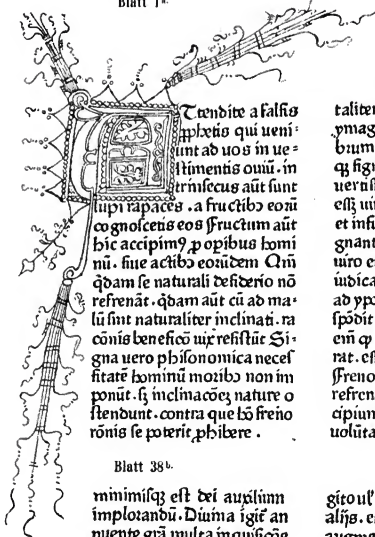 Blatt 1ᵃ.
Ttendite a falsis
ꝓphetis qui ueni⸗
unt ad uos in ue⸗
stimentis ouiū.in
trinsecus aūt sunt
lupi rapaces .a fructibꝫ eorū
cognoscetis eos Fructum aūt
hic accipimꝰ ꝓ opibus homi
nū. siue actibꝫ eorūdem Qm̄
qdam se naturali desiderio nō
refrenāt.qdam aūt cū ad ma⸗
lū sint naturaliter inclinati.ra
cōnis beneficō uix resistūt Si⸗
gna uero phisonomica neces
sitatē hominū moribꝫ non im
ponūt.sꝫ inclinacōeꝫ nature o
stendunt.contra que hō freno
rōnis se poterit ꝓhibere .
Blatt 38ᵇ.
minimisqꝫ est dei auxilium
implorandū.Diuina igit̄ an
taliter
ymag
brum
et infi
gnant
uiro e
iudica
ad ypo
spōdit
em̄ q
rat. es
Freno
refren
cipium
uolūta
alijs. e